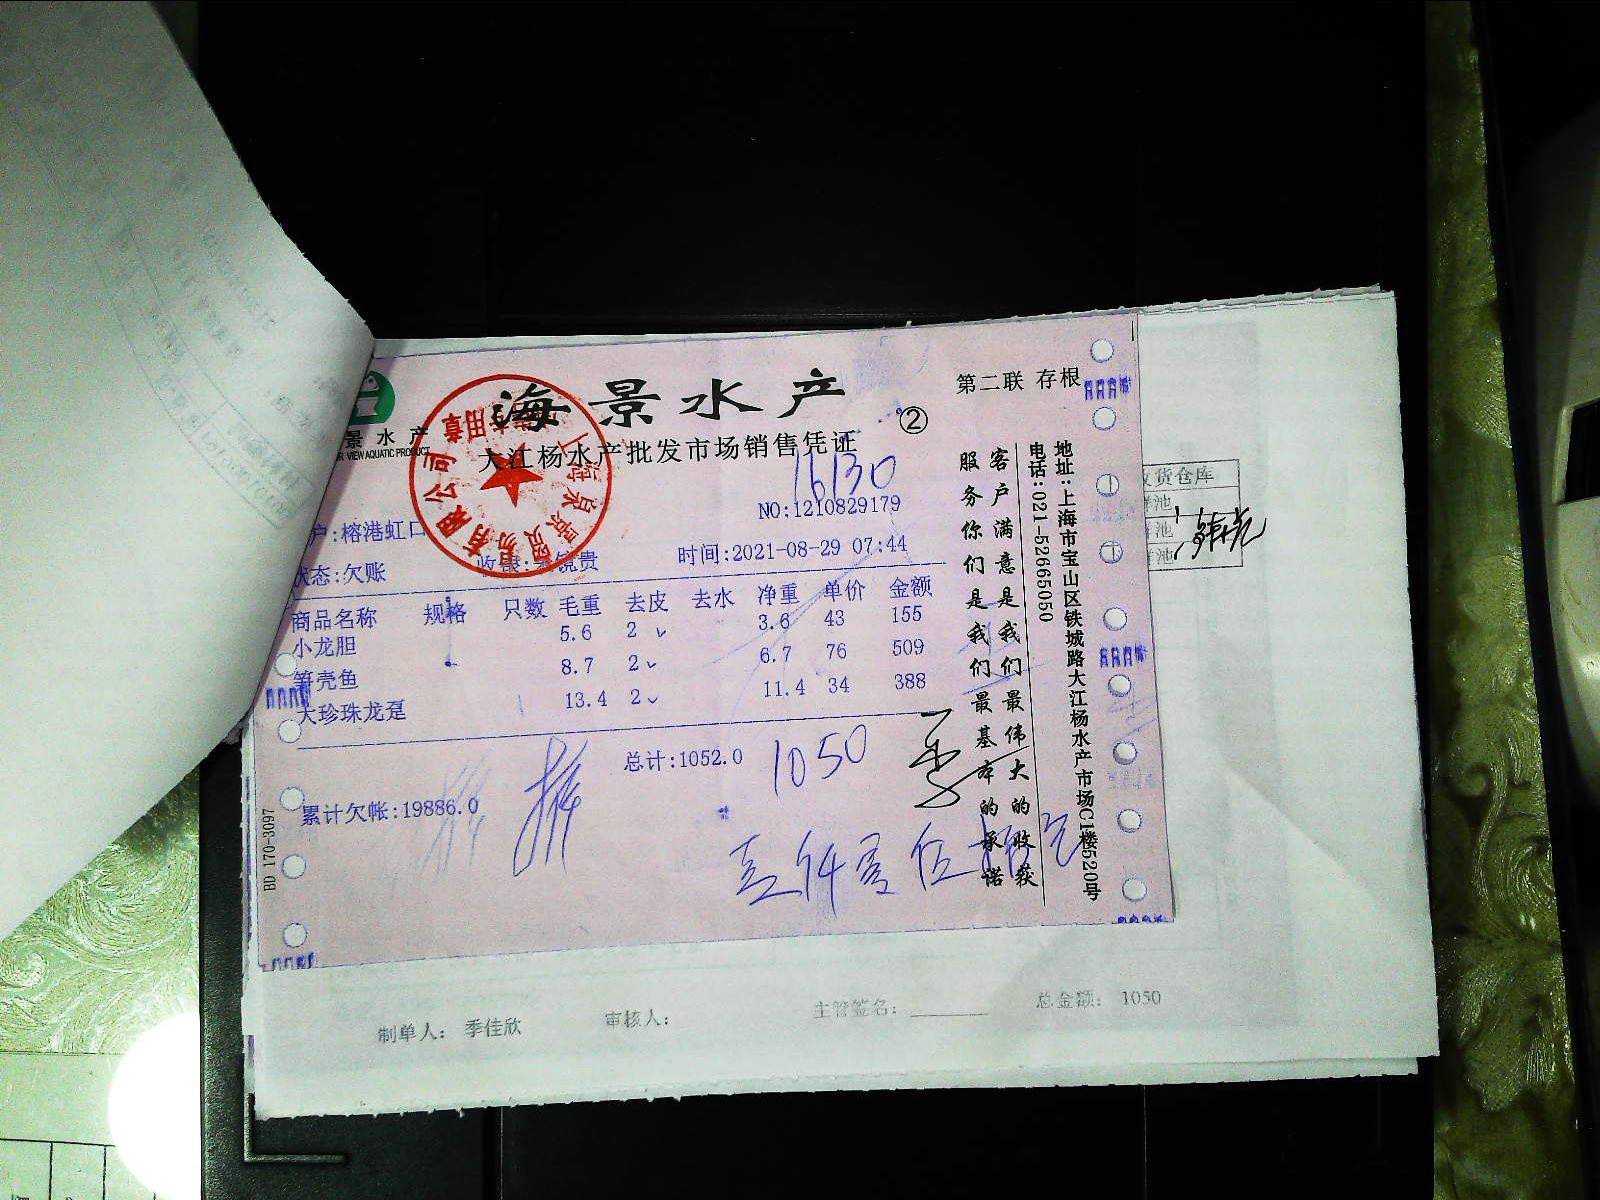 海景水产
第二联 存根
②
景水产
VIEW AQUATIC PRODUCT
大江杨水产批发市场销售凭证
16130
NO:1210829179
户:榕港虹口
状态:欠账
镜贵
时间:2021-08-29 07:44
商品名称 规格 只数 毛重 去皮 去水 净重 单价 金额
小龙胆 5.6 2 3.6 43 155
笋壳鱼 8.7 2 6.7 76 509
大珍珠龙趸 13.4 2 11.4 34 388
总计:1052.0
1050
累计欠帐:19886.0
BD 170-3097
客户满意是我们最伟大的收获
服务你们是我们最基本的承诺
地址:上海市宝山区铁城路大江杨水产市场C1楼520号
电话:021-52665050
货仓库
鲜池
鲜池
鲜池
制单人: 季佳欣
审核人:
主管签名:
总金额: 1050